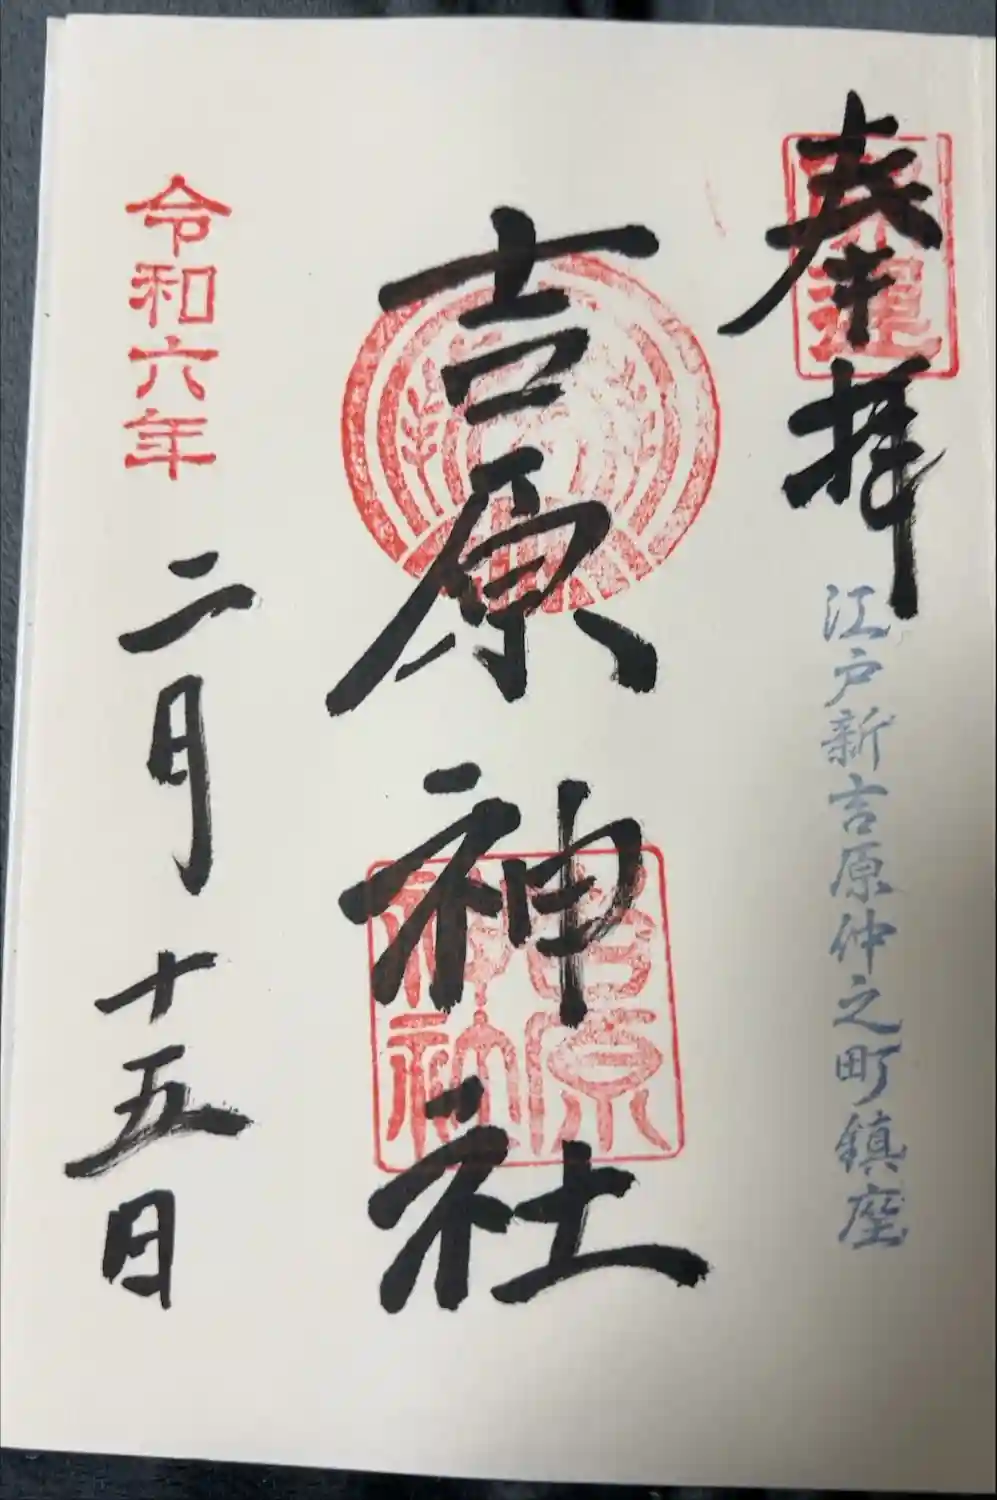 奉拝
江戸新吉原仲之町鎮座
吉原神社
吉原
神社
令和六年二月十五日